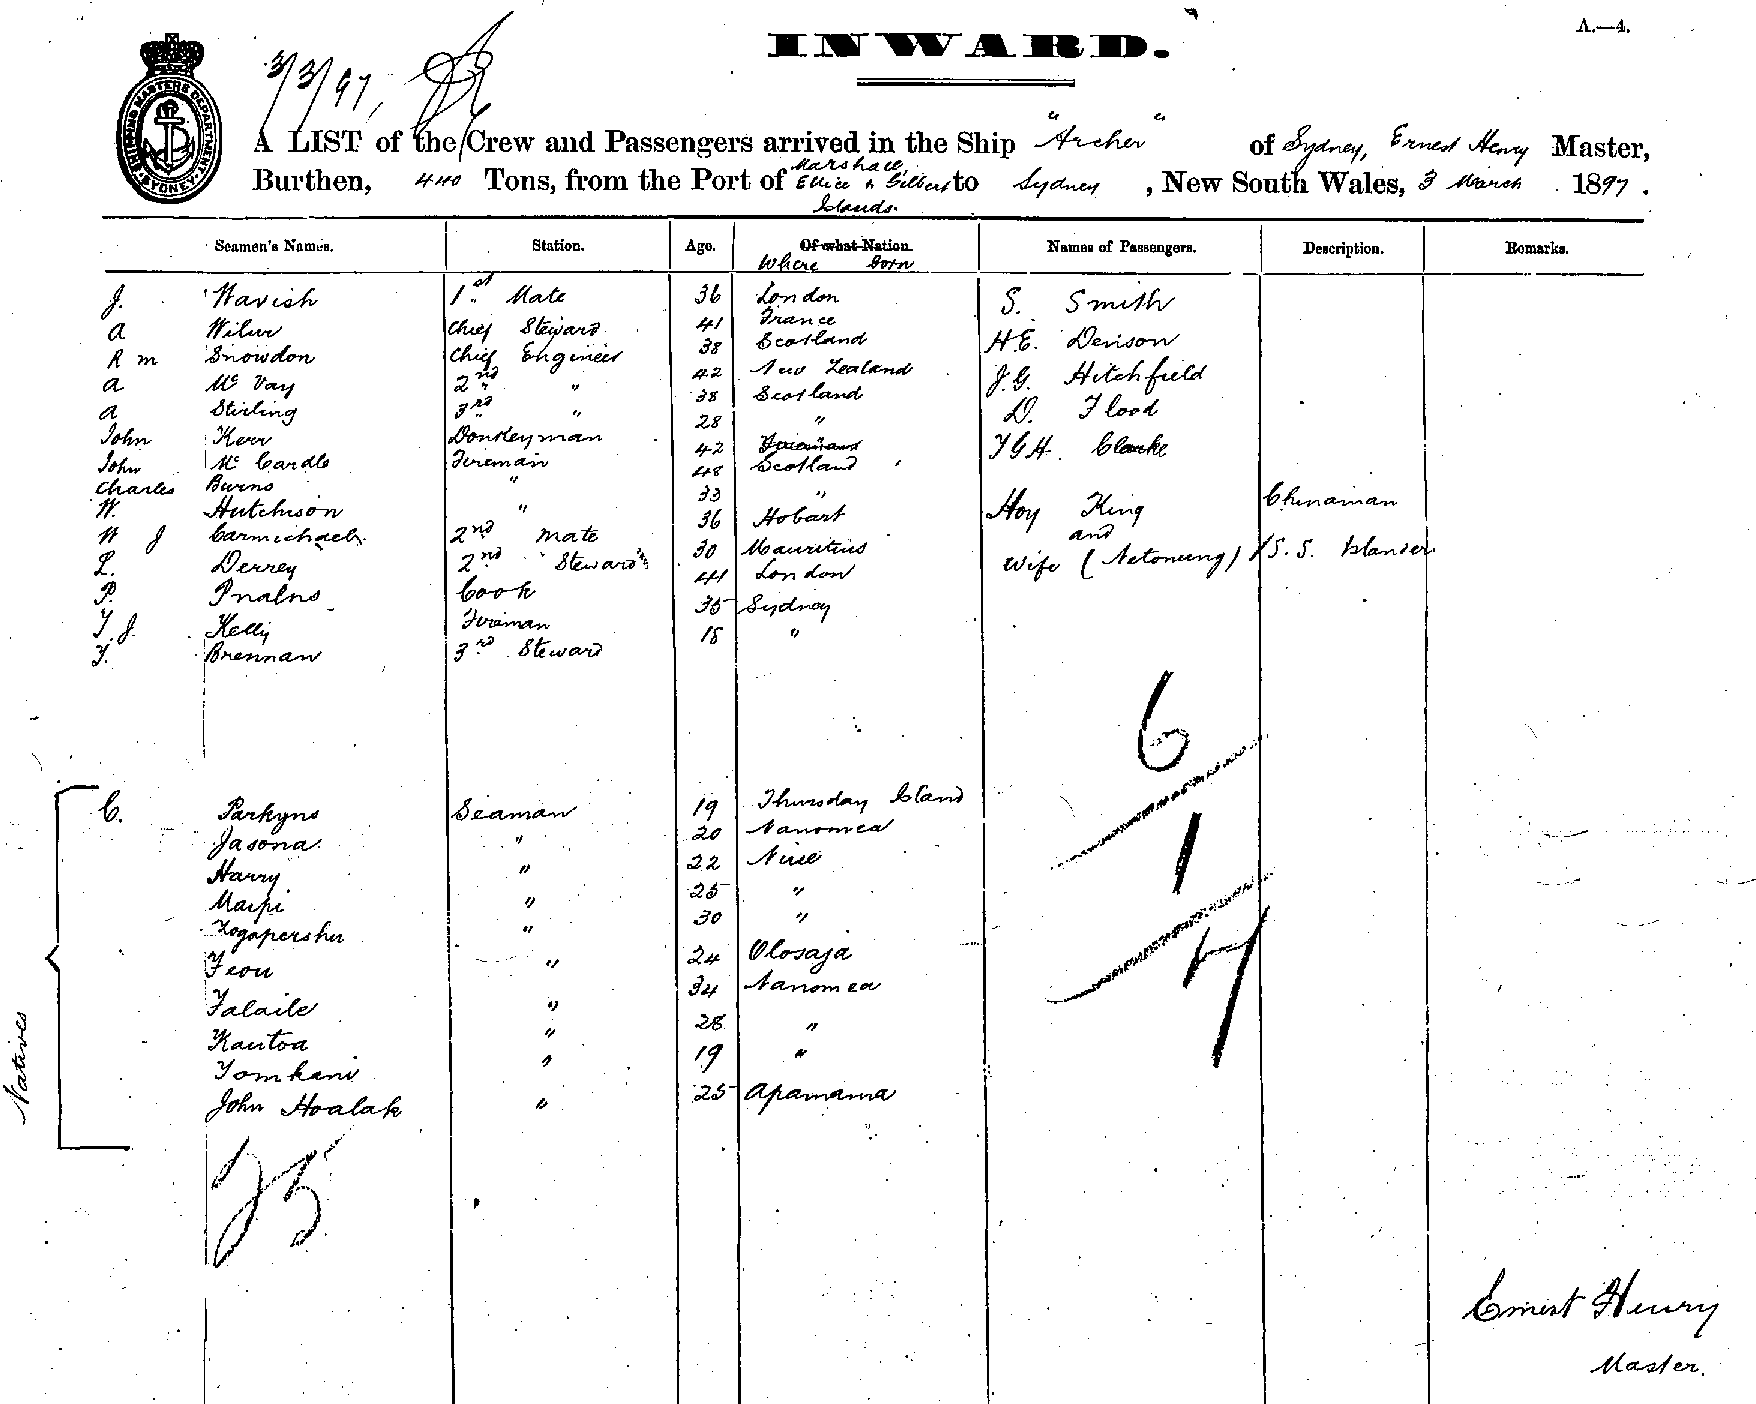 A.—4.
INWARD.
3/3/97,
SHIPPING MASTERS DEPARTMENT SYDNEY
A LIST of the Crew and Passengers arrived in the Ship "Archer" of Sydney, Ernest Henry Master,
Burthen, 440 Tons, from the Port of Marshall, Ellice & Gilbert Islands. to Sydney, New South Wales, 3 March 1897.
Seamen's Names. Station. Age. Of what Nation. Names of Passengers. Description. Remarks.
Where Born
J. Wavish 1st Mate 36 London S. Smith
A Chief Steward 41 France H.E. Denison
R m Snowdon Chief Engineer 38 Scotland J.G. Hitchfield
A McVay 2nd " 42 New Zealand D. Flood
A Stirling 3rd " 38 Scotland T G H. Clarke
John Kerr Donkeyman 28 "
John McCardle Fireman 42 Scotland
Charles Burns " 48
W. Hutchison " 33 " Hoy King Chinaman
W J Carmichael 2nd Mate 36 Hobart and
L. Derrey 2nd Steward 30 Mauritius wife (Netoneng) S. S. Islander
P. Cook 41 London
T. J. Kelly Fireman 35 Sydney
T. Brennan 3rd Steward 18 "
6
Natives
C. Parkyns Seaman 19 Thursday Island
Jasona " 20 Nanomea
Harry " 22 Niue
Maipi " 25 "
" 30 "
Feou " 24 Olosaja
Falaile " 34 Nanomea
Kautoa " 28 "
Tomkani " 19 "
John Hoalak " 25 Apamama
1
7
25
Ernest Henry
Master.